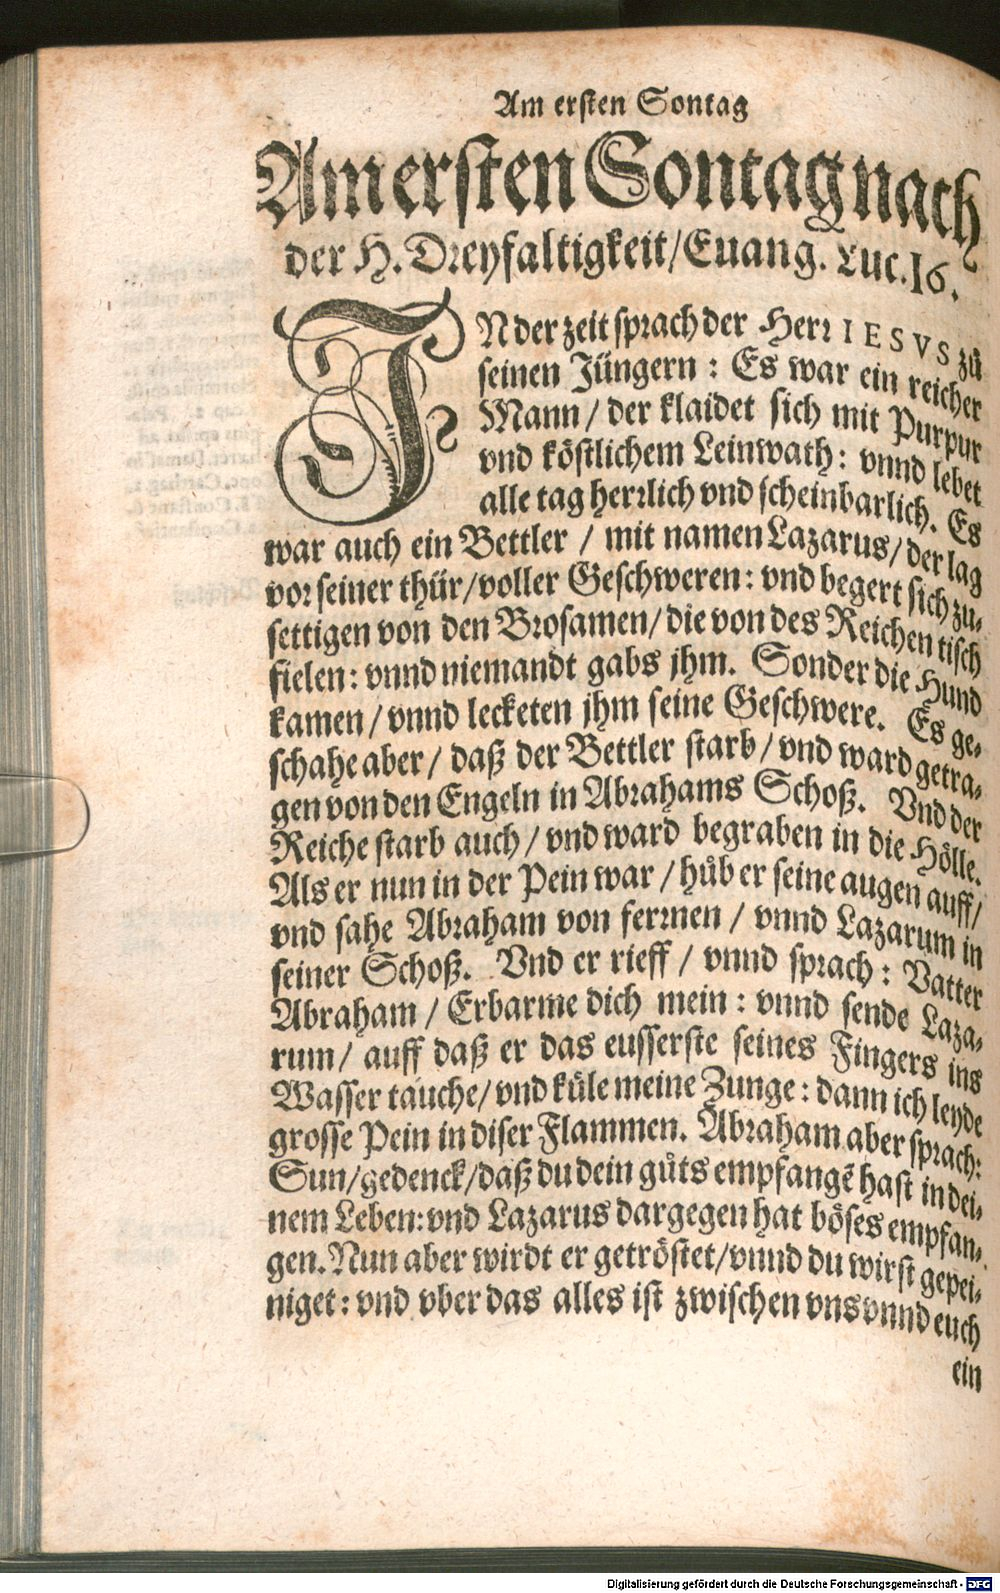 Am ersten Sontag
Am ersten Sontag nach
der H. Dreyfaltigkeit/Euang. Luc. 16.
IN der zeit sprach der Herr IESVS zů
seinen Jüngern: Es war ein reicher
Mann / der klaidet sich mit Purpur
vnd köstlichem Leinwath: vnnd lebet
alle tag herrlich vnd scheinbarlich. Es
war auch ein Bettler / mit namen Lazarus/ der lag
vor seiner thür/voller Geschweren: vnd begert sich zu-
settigen von den Brosamen/ die von des Reichen tisch
fielen: vnnd niemandt gabs jhm. Sonder die Hund
kamen / vnnd lecketen jhm seine Geschwere. Es ge-
schahe aber / daß der Bettler starb/ vnd ward getra-
gen von den Engeln in Abrahams Schoß. Vnd der
Reiche starb auch / vnd ward begraben in die Hölle.
Als er nun in der Pein war / hůb er seine augen auff/
vnd sahe Abraham von ferrnen / vnnd Lazarum in
seiner Schoß. Vnd er rieff / vnnd sprach: Vatter
Abraham / Erbarme dich mein: vnnd sende Laza-
rum/ auff daß er das eusserste seines Fingers ins
Wasser tauche/ vnd küle meine Zunge: dann ich leyde
grosse Pein in diser Flammen. Abraham aber sprach:
Sun/gedenck/daß du dein gůts empfangē hast in dei-
nem Leben: vnd Lazarus dargegen hat böses empfan-
gen. Nun aber wirdt er getröstet/vnnd du wirst gepei-
niget: vnd vber das alles ist zwischen vns vnnd euch
ein
Digitalisierung gefördert durch die Deutsche Forschungsgemeinschaft - DFG